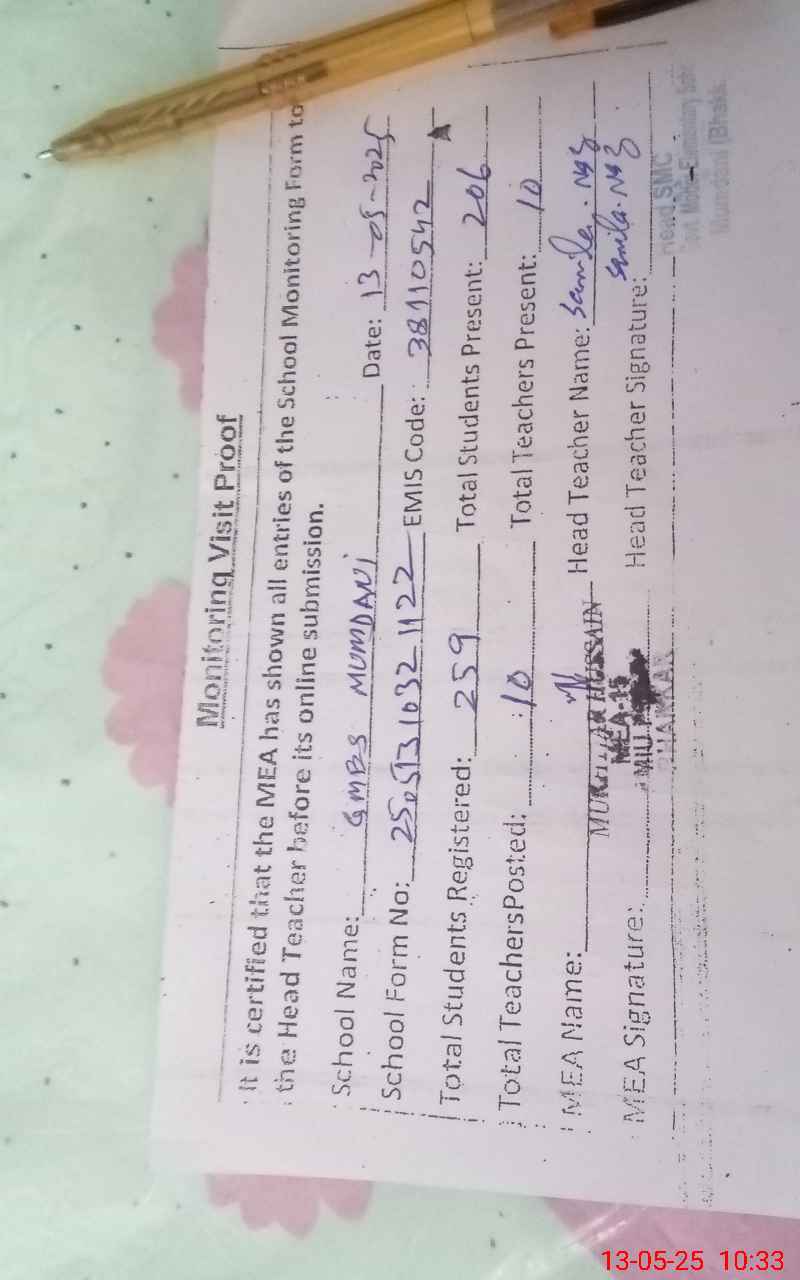 Monitoring Visit Proof
It is certified that the MEA has shown all entries of the School Monitoring Form to
the Head Teacher before its online submission.
School Name: GMBS MUMDANI Date: 13-05-2025
School Form No: EMIS Code: 38110542
Total Students Registered: 259 Total Students Present: 206
Total TeachersPosted: 10 Total Teachers Present: 10
MEA Name: HUSSAIN Head Teacher Name: Samila. Naz
MEA-15
MEA Signature: MIU Head Teacher Signature: Samila. Naz
Head SMC
Mumdani (Bhakk
13-05-25 10:33